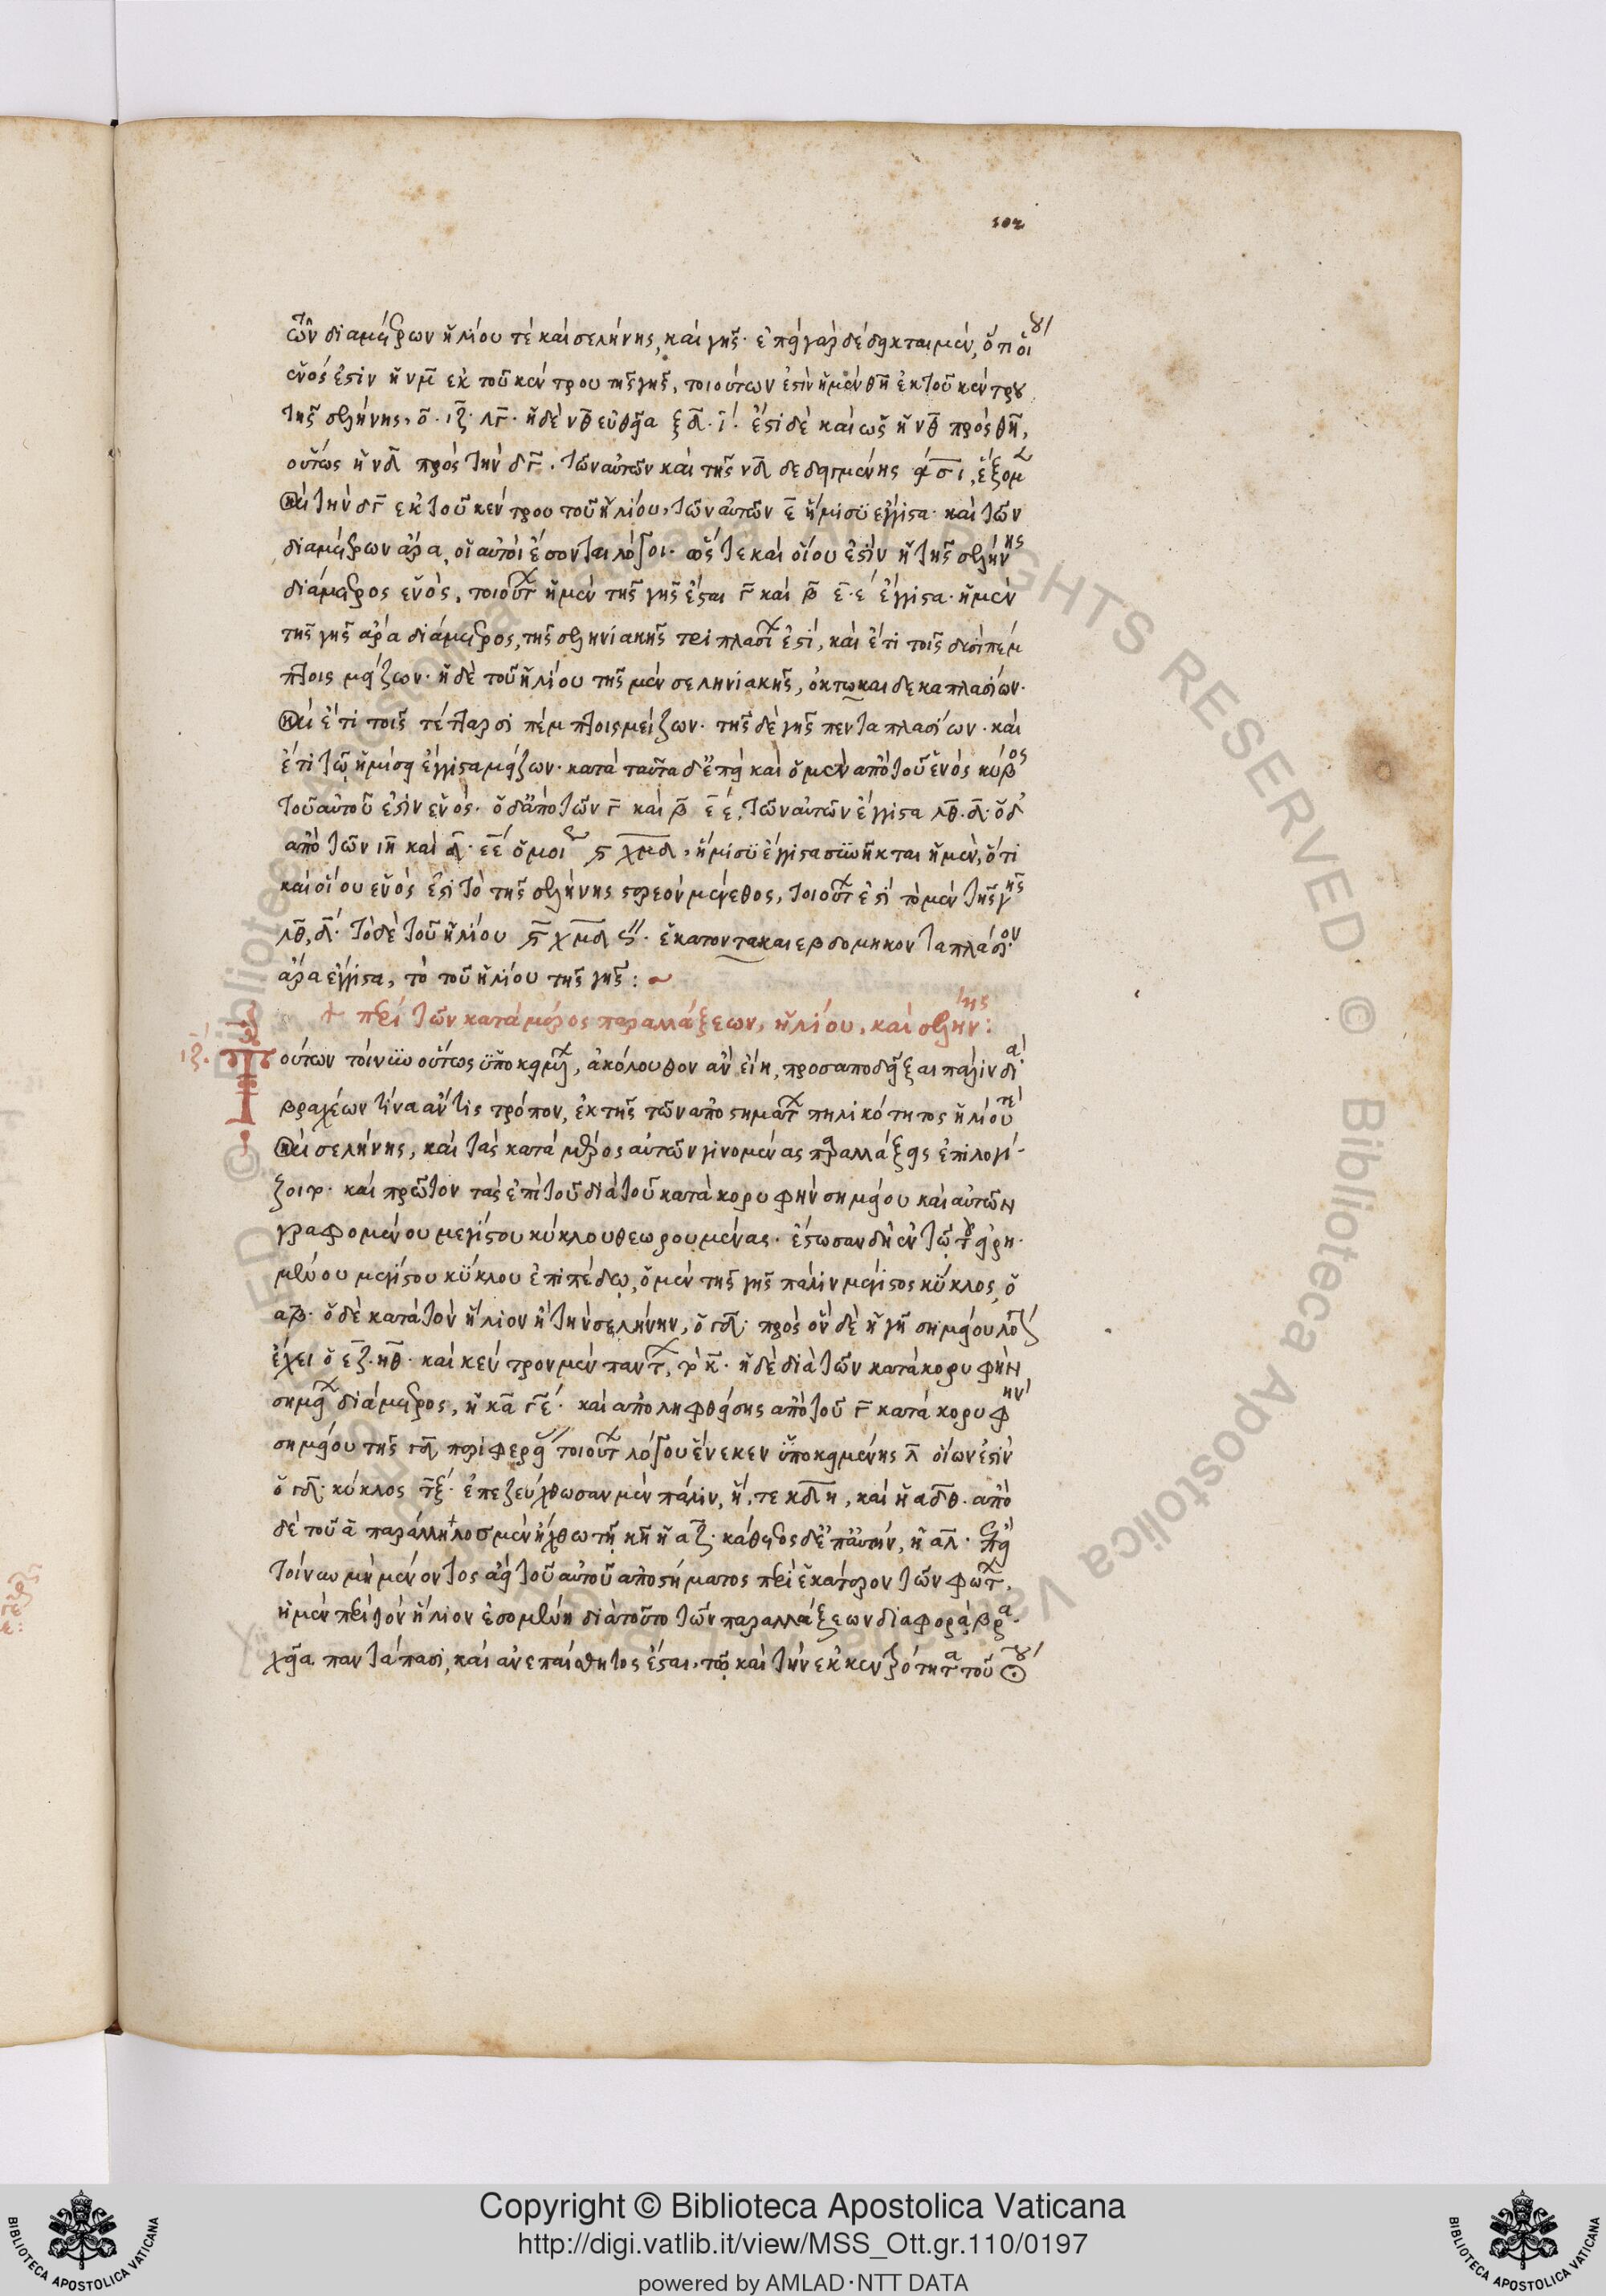 102
ῶν διαμέτρων ἡλίου τε καὶ σελήνης, καὶ γῆς. ἐπεὶ γὰρ δέδεικται μὲν, ὅτι οἵου
ἑνός ἐστιν ἡ νμ ἐκ τοῦ κέντρου τῆς γῆς, τοιούτων ἐστὶν ἡ μὲν θη ἐκ τοῦ κέντρου
τῆς σελήνης, ο ιζ λγ. ἡ δὲ νθ εὐθεῖα ξδ ι. ἔστι δὲ καὶ ὡς ἡ νθ πρὸς θη,
οὕτως ἡ νδ πρὸς τὴν δγ. τῶν αὐτῶν καὶ τῆς νδ δεδειγμένης ͵ασι, ἕξομεν
καὶ τὴν δγ ἐκ τοῦ κέντρου τοῦ ἡλίου, τῶν αὐτῶν ε ἥμισυ ἔγγιστα. καὶ τῶν
διαμέτρων ἄρα, οἱ αὐτοὶ ἔσονται λόγοι. ὥστε καὶ οἵου ἐστὶν ἡ τῆς σελήνης
διάμετρος ἑνὸς, τοιούτων ἡ μὲν τῆς γῆς ἔσται γ καὶ β ε ε ἔγγιστα. ἡ μὲν
τῆς γῆς ἄρα διάμετρος, τῆς σεληνιακῆς τριπλασίων ἐστὶ, καὶ ἔτι τοῖς δυσὶ πέμ
πτοις μείζων. ἡ δὲ τοῦ ἡλίου τῆς μὲν σεληνιακῆς, ὀκτωκαιδεκαπλασίων.
καὶ ἔτι τοῖς τέτταρσι πέμπτοις μείζων. τῆς δὲ γῆς πενταπλασίων. καὶ
ἔτι τῷ ἡμίσει ἔγγιστα μείζων. κατὰ ταῦτα δ' ἐπεὶ καὶ ὁ μὲν ἀπὸ τοῦ ἑνὸς κύβος
τοῦ αὐτοῦ ἐστὶν ἑνὸς. ὁ δ' ἀπὸ τῶν γ καὶ β ε ε, τῶν αὐτῶν ἔγγιστα λθ δ. ὁ δ'
ἀπὸ τῶν ιη καὶ δ εε ὁμοίως ͵ςχμδ, ἥμισυ ἔγγιστα συνῆκται ἡμῖν, ὅτι
καὶ οἵου ἑνός ἐστι τὸ τῆς σελήνης στερεὸν μέγεθος, τοιούτων ἐστὶ τὸ μὲν τῆς γῆς
λθ, δ. τὸ δὲ τοῦ ἡλίου ͵ςχμδ 𐅵. ἑκατοντακαιεβδομηκονταπλάσιον
ἄρα ἔγγιστα, τὸ τοῦ ἡλίου τῆς γῆς:
+ περὶ τῶν κατὰ μέρος παραλλάξεων, ἡλίου, καὶ σελήνης:
ιζ. Τούτων τοίνυν οὕτως ὑποκειμένων, ἀκόλουθον ἂν εἴη, προσαποδεῖξαι πάλιν διὰ
βραχέων τίνα ἄν τις τρόπον, ἐκ τῆς τῶν ἀποστημάτων πηλικότητος ἡλίου τε
καὶ σελήνης, καὶ τὰς κατὰ μέρος αὐτῶν γινομένας παραλλάξεις ἐπιλογί
ζοιτο. καὶ πρῶτον τὰς ἐπὶ τοῦ διὰ τοῦ κατὰ κορυφὴν σημείου καὶ αὐτῶν
γραφομένου μεγίστου κύκλου θεωρουμένας. ἔστωσαν δὴ ἐν τῷ τοῦ εἰρη
μένου μεγίστου κύκλου ἐπιπέδῳ, ὁ μὲν τῆς γῆς πάλιν μέγιστος κύκλος, ὁ
αβ. ὁ δὲ κατὰ τὸν ἥλιον ἢ τὴν σελήνην, ὁ γδ. πρὸς ὃν δὲ ἡ γῆ σημείου λόγον
ἔχει ὁ εζηθ. καὶ κέντρον μὲν πάντων, τὸ κ. ἡ δὲ διὰ τῶν κατὰ κορυφὴν
σημείων διάμετρος, ἡ κα γε. καὶ ἀποληφθείσης ἀπὸ τοῦ γ κατὰ κορυφὴν
σημείου τῆς γδ περιφερείας τοιούτων λόγου ἕνεκεν ὑποκειμένης λ οἵων ἐστὶν
ὁ γδ κύκλος τξ. ἐπεζεύχθωσαν μὲν πάλιν, ἥ, τε κδη, καὶ ἡ αδθ. ἀπὸ
δὲ τοῦ α παράλληλος μὲν ἤχθω τῇ κη ἡ αζ. κάθετος δὲ ἐπ' αὐτὴν, ἡ αλ. ἐπεὶ
τοίνυν μὴ μένοντος ἀεὶ τοῦ αὐτοῦ ἀποστήματος περὶ ἑκάτερον τῶν φώτων,
ἡ μὲν περὶ τὸν ἥλιον ἐσομένη διὰ τοῦτο τῶν παραλλάξεων διαφορὰ, βρα
χεῖα παντάπασι, καὶ ἀνεπαίσθητος ἔσται, τῷ καὶ τὴν ἐκκεντρότητα τοῦ ☉
Copyright © Biblioteca Apostolica Vaticana
http://digi.vatlib.it/view/MSS_Ott.gr.110/0197
powered by AMLAD·NTT DATA
BIBLIOTECA APOSTOLICA VATICANA
BIBLIOTECA APOSTOLICA VATICANA